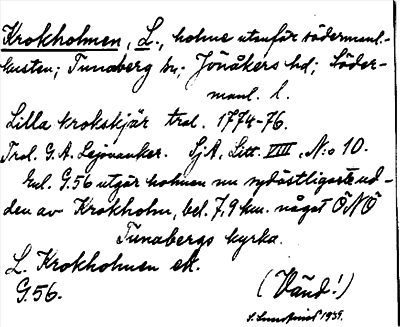 Krokholmen, L., holme utanför södermanl.-
kusten; Tunaberg sn; Jönåkers hd; Söder-
manl. l.
Lilla krokskjär tral. 1774-76.
Tral. G. A. Lejonanker. SjA, Litt. VIII, N:o 10.
Enl. G.56 utgör holmen nu sydöstligaste ud-
den av Krokholm, bel. 7,9 km. något ÖNÖ
Tunabergs kyrka.
L. Krokholmen ek.
G.56.
(Vänd!)
1939.